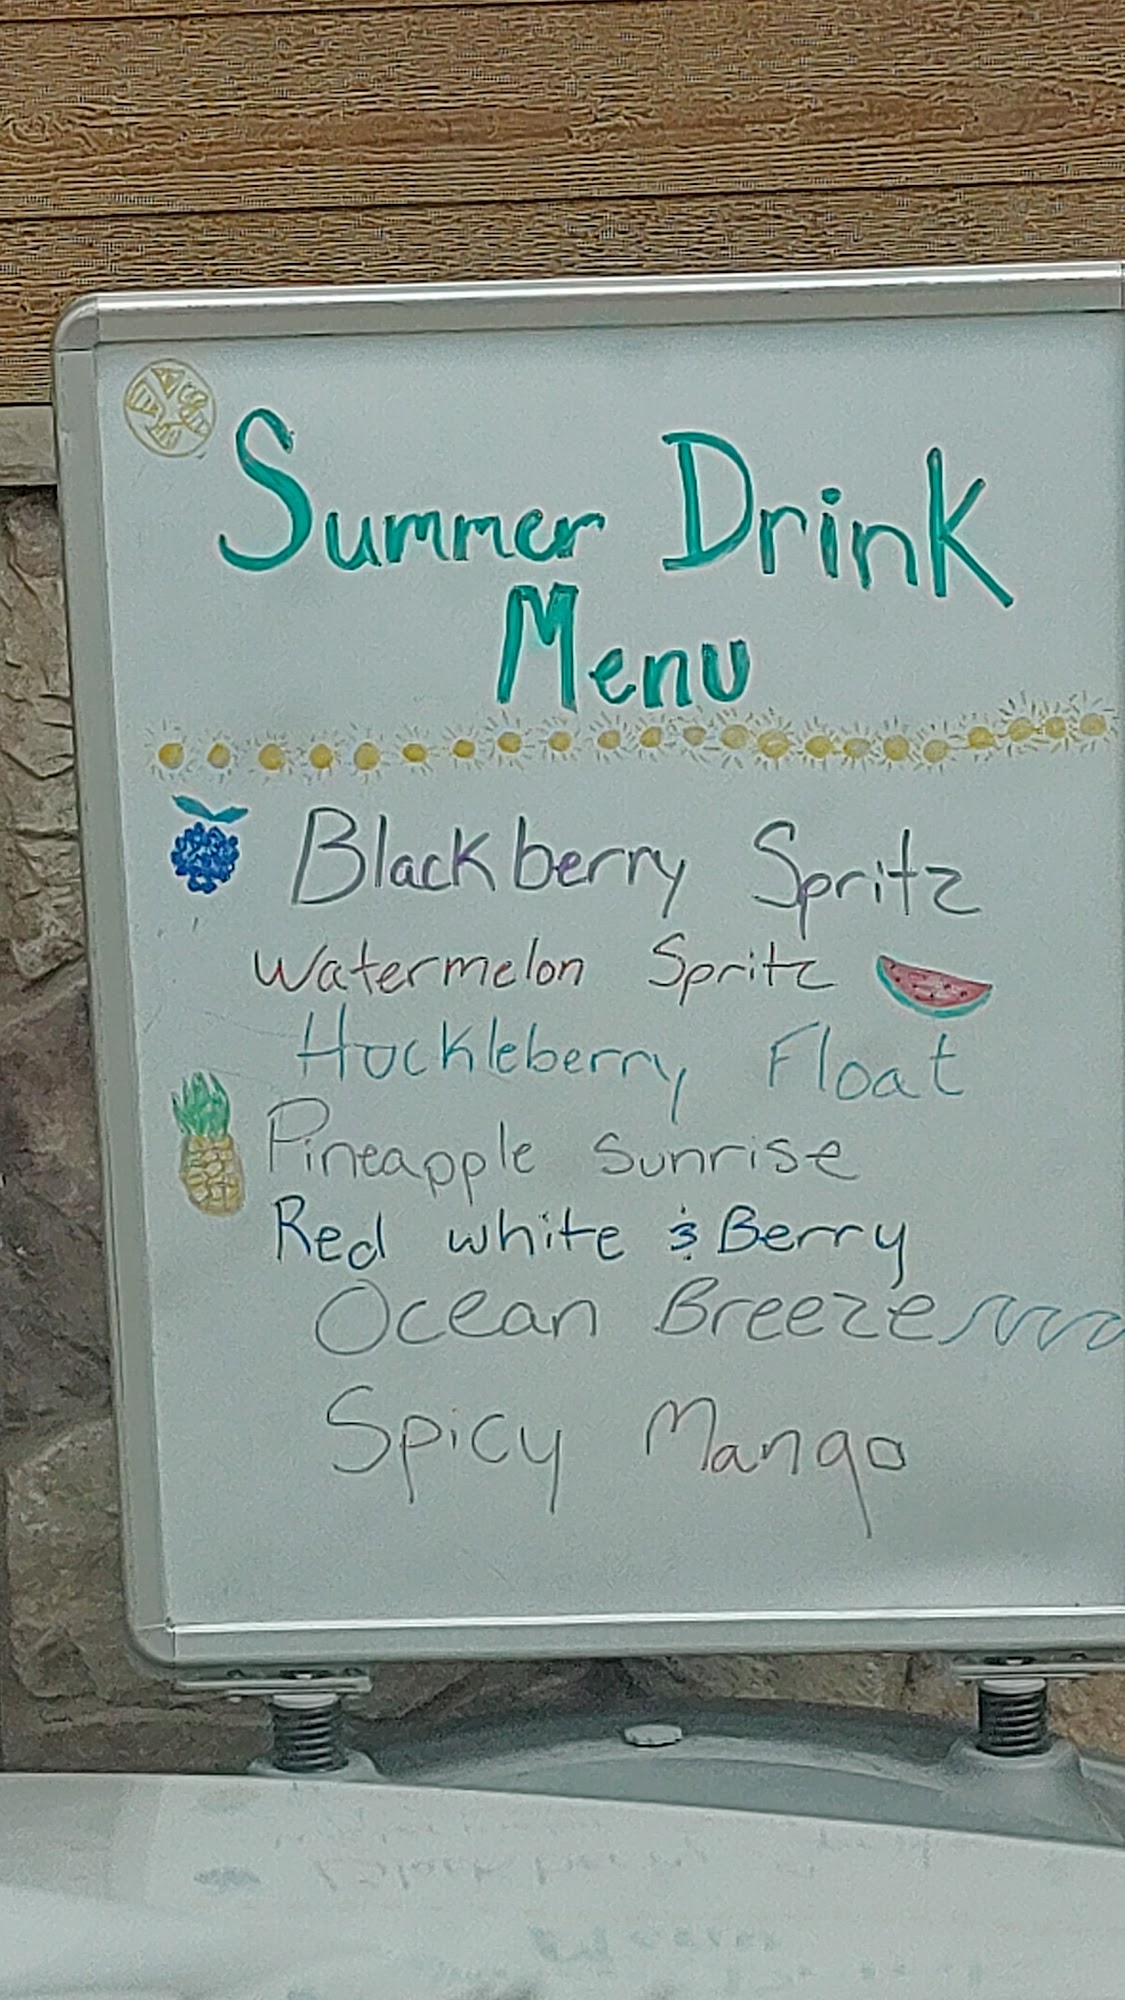 Summer Drink
Menu
Blackberry Spritz
Watermelon Spritz
Huckleberry Float
Pineapple Sunrise
Red white & Berry
Ocean Breeze
Spicy Mango